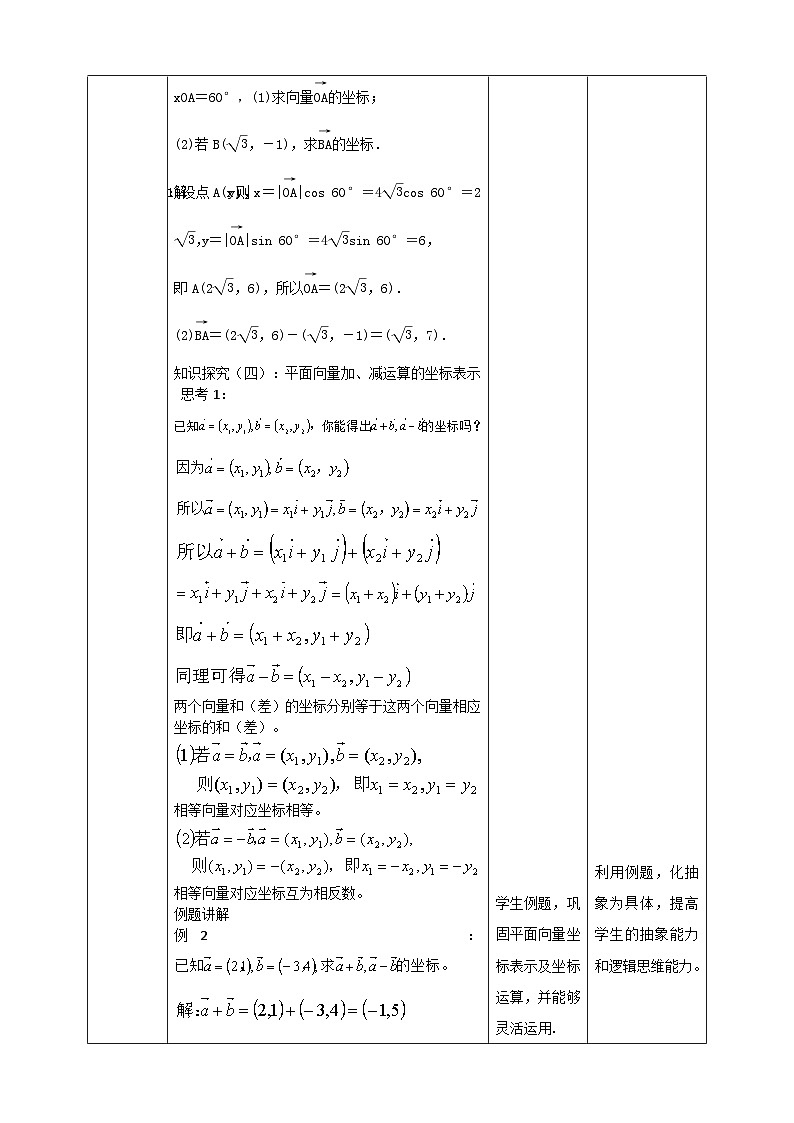 xOA＝60°，(1)求向量OA的坐标；
(2)若 B(√3，－1)，求BA的坐标．
设点 A(x，y)，则 x＝|OA|cos 60°＝4√3cos 60°＝2
√3，y＝|OA|sin 60°＝4√3sin 60°＝6，
即 A(2√3，6)，所以OA＝(2√3，6)．
(2)BA＝(2√3，6)－(√3，－1)＝(√3，7)．
知识探究（四）：平面向量加、减运算的坐标表示
思考1：
已知a=(x₁,y₁),b=(x₂,y₂)，你能得出a+b,a−b的坐标吗？
因为a=(x₁,y₁),b=(x₂，y₂)
所以a=(x₁,y₁)=x₁i+y₁j,b=(x₂，y₂)=x₂i+y₂j
所以a+b=(x₁i+y₁j)+(x₂i+y₂j)
=x₁i+y₁j+x₂i+y₂j=(x₁+x₂)i+(y₁+y₂)j
即a+b=(x₁+x₂,y₁+y₂)
同理可得a−b=(x₁−x₂,y₁−y₂)
两个向量和（差）的坐标分别等于这两个向量相应
坐标的和（差）。
(1)若a=b,a=(x₁,y₁),b=(x₂,y₂),
则(x₁,y₁)=(x₂,y₂)，即x₁=x₂,y₁=y₂
相等向量对应坐标相等。
(2)若a=−b,a=(x₁,y₁),b=(x₂,y₂),
则(x₁,y₁)=−(x₂,y₂)，即x₁=−x₂,y₁=−y₂
相等向量对应坐标互为相反数。
例题讲解
例 2 ：
已知a=(2,1),b=(−3,4),求a+b,a−b的坐标。
解:a+b=(2,1)+(−3,4)=(−1,5)
学生例题，巩
固平面向量坐
标表示及坐标
运算，并能够
灵活运用.
利用例题，化抽
象为具体，提高
学生的抽象能力
和逻辑思维能力。